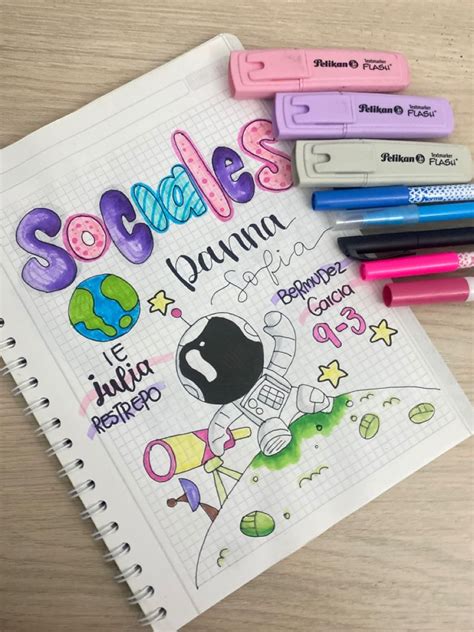 Sociales
Danna
Sofia
BERMUDEZ
Garcia
9-3
IE
Julia
RESTREPO
Pelikan
Textmarker
FLASH
Pelikan
Textmarker
FLASH
Pelikan
Textmarker
FLASH